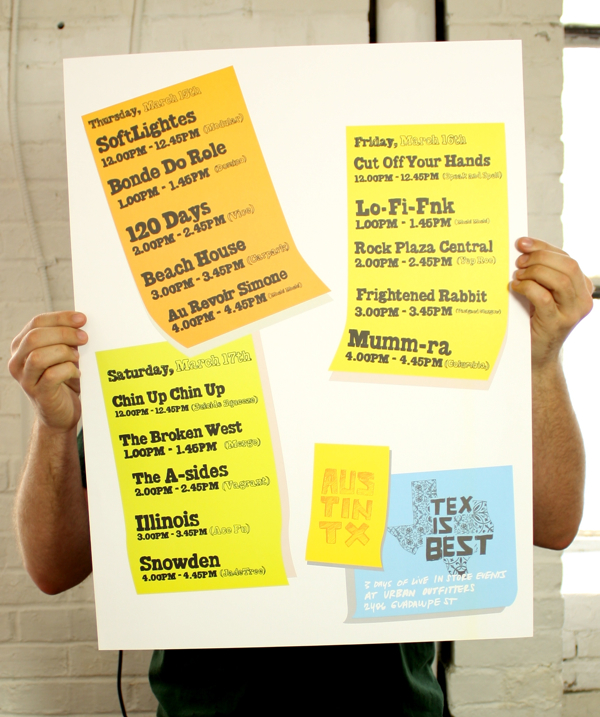 Thursday, March 15th
SoftLightes
12.00PM - 12.45PM (Modular)
Bonde Do Role
1.00PM - 1.45PM (Domino)
120 Days
2.00PM - 2.45PM (Vice)
Beach House
3.00PM - 3.45PM (Carpark)
Au Revoir Simone
4.00PM - 4.45PM
Friday, March 16th
Cut Off Your Hands
12.00PM - 12.45PM (Speak and Spell)
Lo-Fi-Fnk
1.00PM - 1.45PM
Rock Plaza Central
2.00PM - 2.45PM (Yep Roc)
Frightened Rabbit
3.00PM - 3.45PM
Mumm-ra
4.00PM - 4.45PM (Columbia)
Saturday, March 17th
Chin Up Chin Up
12.00PM - 12.45PM (Suicide Squeeze)
The Broken West
1.00PM - 1.45PM (Merge)
The A-sides
2.00PM - 2.45PM (Vagrant)
Illinois
3.00PM - 3.45PM (Ace Fu)
Snowden
4.00PM - 4.45PM (JadeTree)
AUS
TIN
TX
TEX
IS
BEST
3 DAYS OF LIVE IN STORE EVENTS
AT URBAN OUTFITTERS
2406 GUADALUPE ST